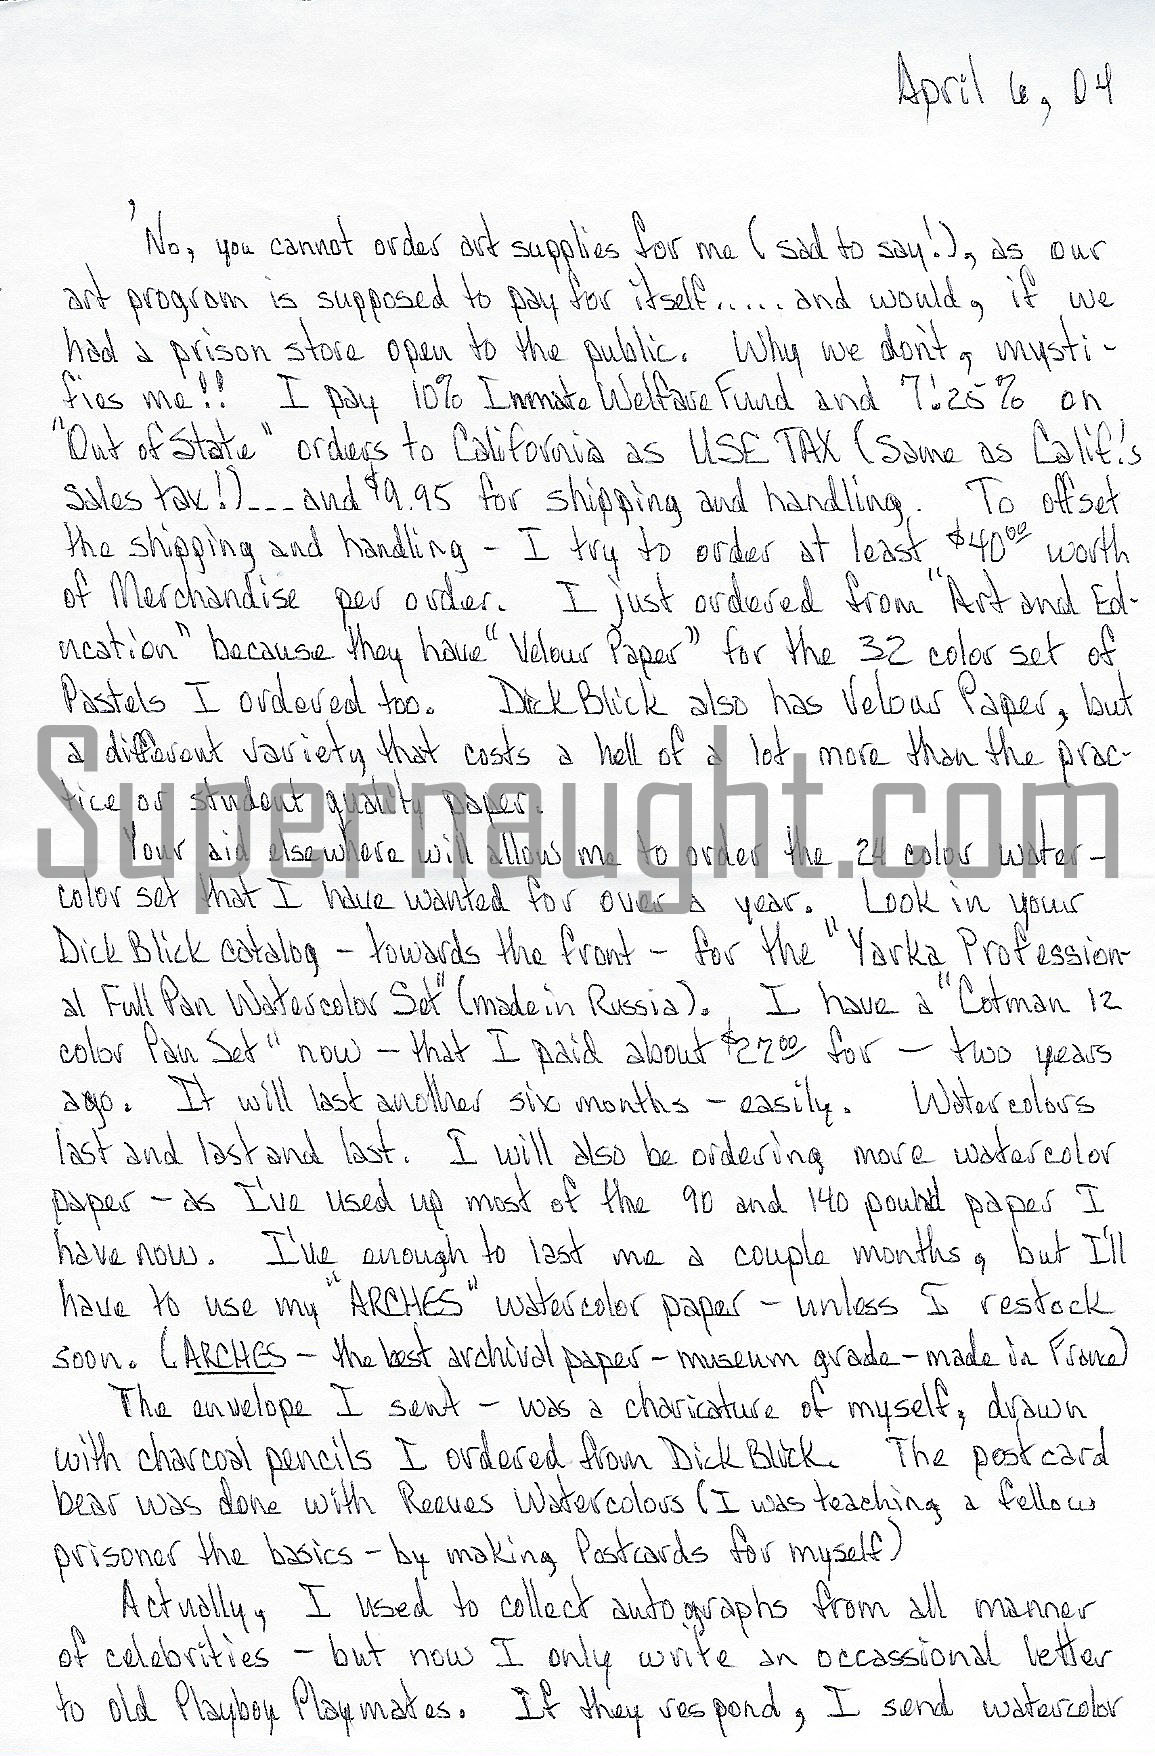 April 6, 04
No, you cannot order art supplies for me (sad to say!), as our
art program is supposed to pay for itself.....and would, if we
had a prison store open to the public. Why we don't, mysti-
fies me!! I pay 10% Inmate Welfare Fund and 7.25% on
"Out of State" orders to California as USE TAX (Same as Calif.'s
sales tax!)---and $9.95 for shipping and handling. To offset
the shipping and handling - I try to order at least $40.00 worth
of Merchandise per order. I just ordered from "Art and Ed-
ucation" because they have "Velour Paper" for the 32 color set of
Pastels I ordered too. Dick Blick also has Velour Paper, but
a different variety that costs a hell of a lot more than the prac-
tice or student quality paper.
Supernaught.com
Your aid elsewhere will allow me to order the 24 color water-
color set that I have wanted for over a year. Look in your
Dick Blick catalog - towards the front - for the "Yarka Profession-
al Full Pan Watercolor Set" (made in Russia). I have a "Cotman 12
color Pan Set" now - that I paid about $27.00 for - two years
ago. It will last another six months - easily. Watercolors
last and last and last. I will also be ordering more watercolor
paper - as I've used up most of the 90 and 140 pound paper I
have now. I've enough to last me a couple months, but I'll
have to use my "ARCHES" watercolor paper - unless I restock
soon. (ARCHES - the best archival paper - museum grade - made in France)
The envelope I sent - was a charicature of myself, drawn
with charcoal pencils I ordered from Dick Blick. The postcard
bear was done with Reeves Watercolors (I was teaching a fellow
prisoner the basics - by making Postcards for myself)
Actually, I used to collect autographs from all manner
of celebrities - but now I only write an occassional letter
to old Playboy Playmates. If they respond, I send watercolor